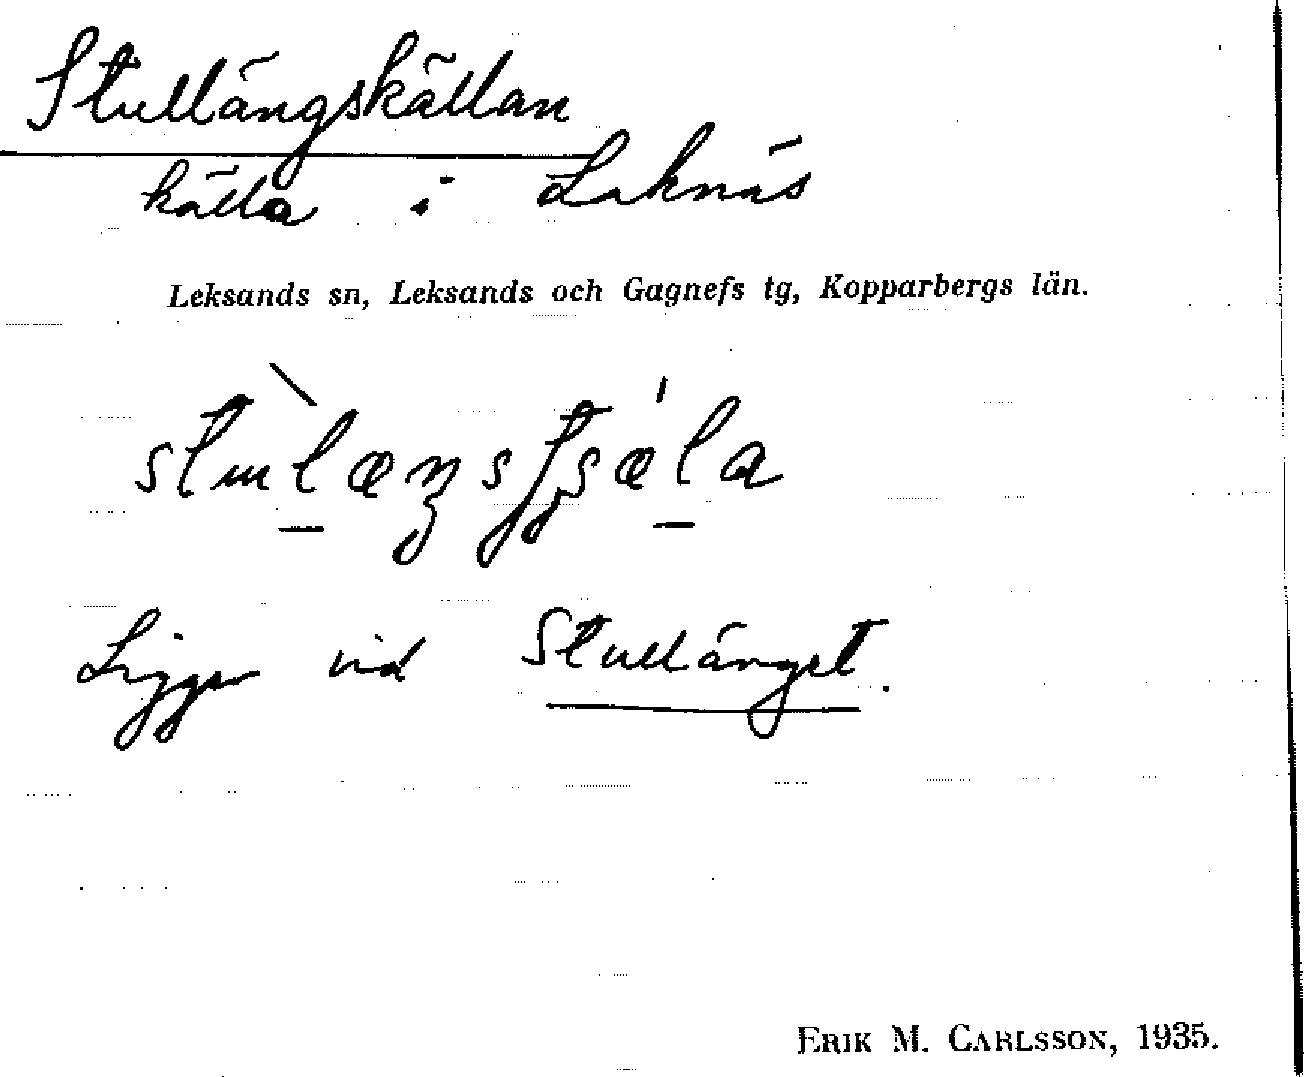 Stullängskällan
källa i Laknäs
Leksands sn, Leksands och Gagnefs tg, Kopparbergs län.
Ligger vid Stullänget.
ERIK M. CARLSSON, 1935.